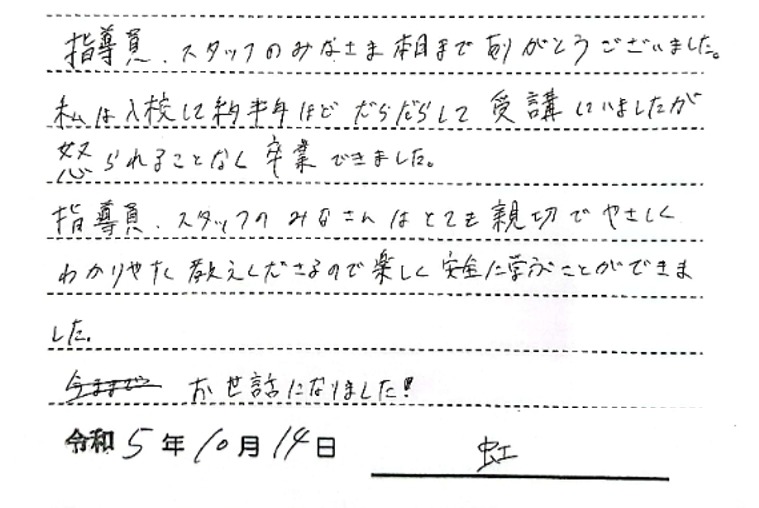 指導員、スタッフのみなさま本日までありがとうございました。
私は入校して約半年ほどだらだらして受講していましたが
怒られることなく卒業できました。
指導員、スタッフのみなさんはとても親切でやさしく
わかりやすく教えてくださるので楽しく安全に学ぶことができま
した。
今まで お世話になりました!
令和5年10月14日 虹